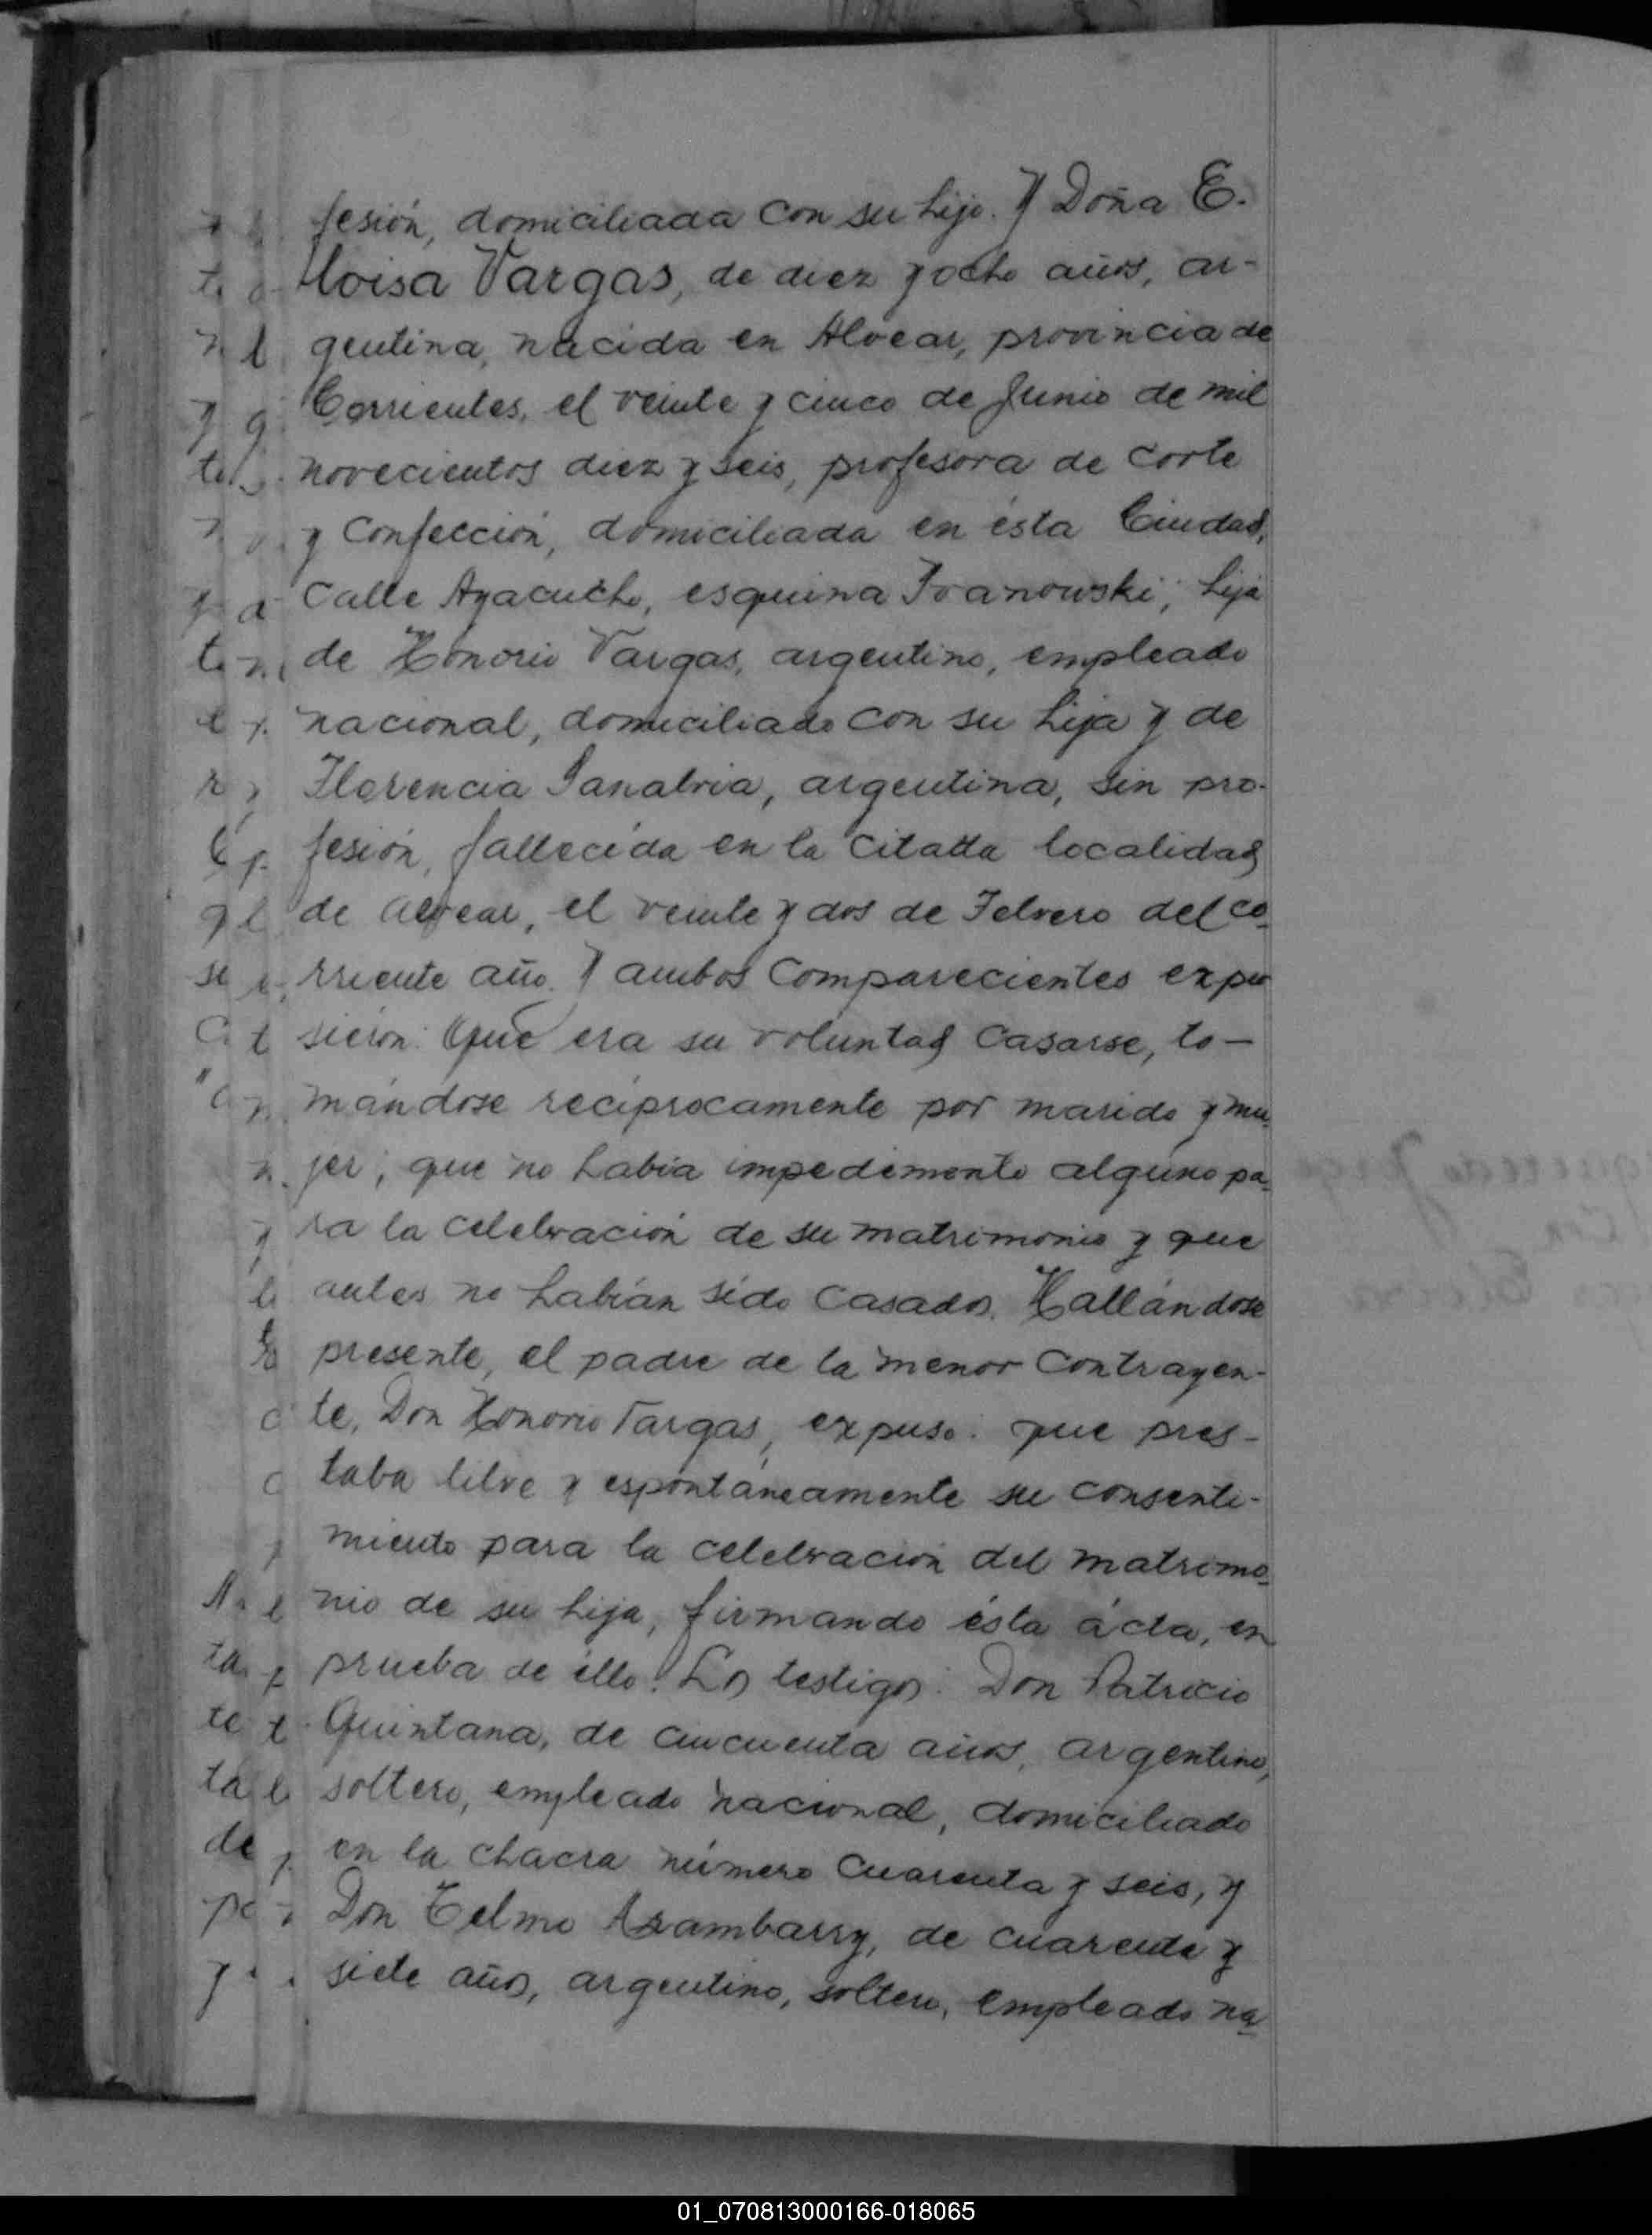 fesión, domiciliada con su hijo. Y Doña E.
loisa Vargas, de diez y ocho años, ar-
gentina, nacida en Alvear, provincia de
Corrientes, el veinte y cinco de Junio de mil
novecientos diez y seis, profesora de corte
y confección, domiciliada en ésta Ciudad,
calle Ayacucho, esquina Ivanowski, hija
de Honorio Vargas, argentino, empleado
nacional, domiciliado con su hija y de
Florencia Sanabria, argentina, sin pro-
fesión, fallecida en la citada localidad
de Alvear, el veinte y dos de Febrero del co-
rriente año. Y ambos comparecientes expu
sieron: Que era su voluntad casarse, to-
mándose recíprocamente por marido y mu-
jer; que no había impedimento alguno pa-
ra la celebración de su matrimonio y que
antes no habían sido casados. Hallándose
presente, el padre de la menor contrayen-
te, Don Honorio Vargas, expuso: que pres-
taba libre y espontáneamente su consenti-
miento para la celebración del matrimo-
nio de su hija, firmando ésta ácta, en
prueba de éllo. Los testigos: Don Patricio
Quintana, de cincuenta años, argentino,
soltero, empleado nacional, domiciliado
en la chacra número cuarenta y seis, y
Don Telmo Azambarry, de cuarenta y
siete años, argentino, soltero, empleado na-
01_070813000166-018065